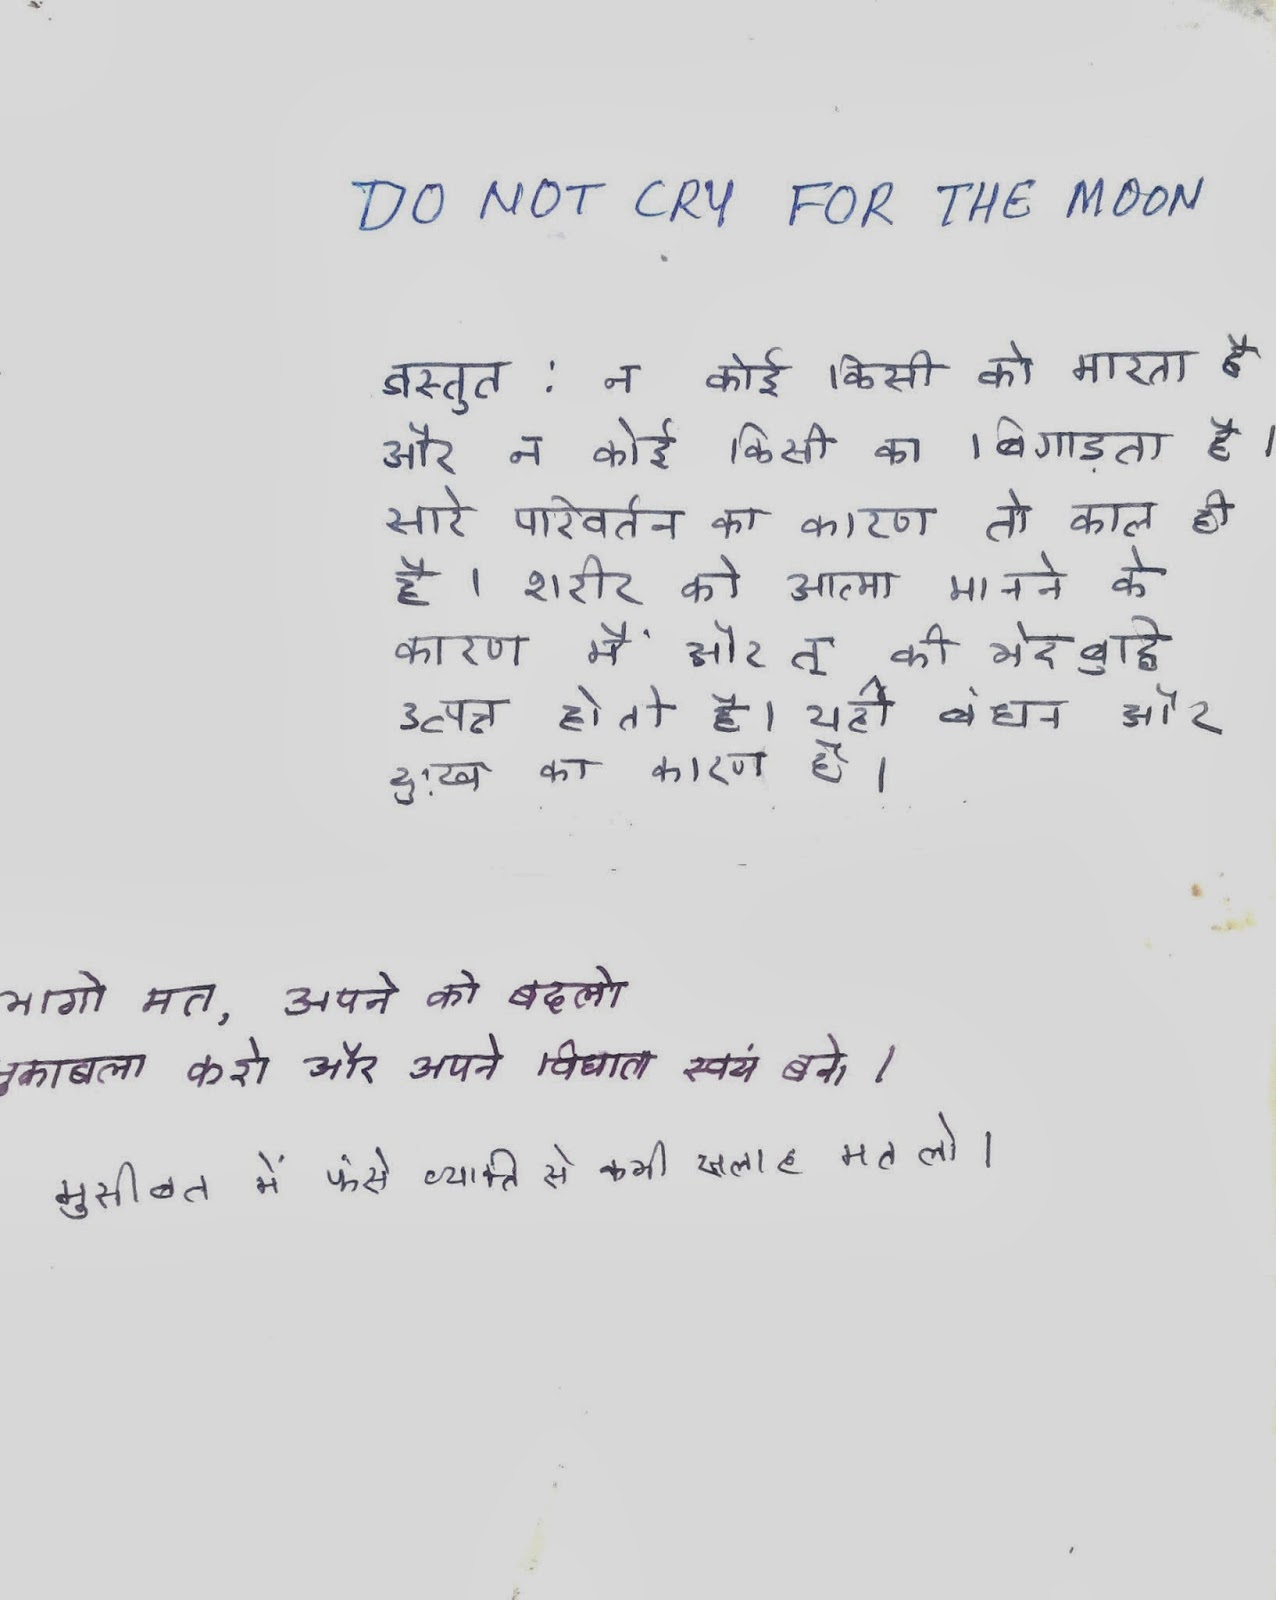 DO NOT CRY FOR THE MOON
वस्तुत : न कोई किसी को मारता है
और न कोई किसी का बिगाड़ता है ।
सारे परिवर्तन का कारण तो काल ही
है । शरीर को आत्मा मानने के
कारण मैं और तू की भेद बुद्धि
उत्पन्न होती है । यही बंधन और
दुःख का कारण है ।
भागो मत, अपने को बदलो
मुकाबला करो और अपने विधाता स्वयं बनो ।
मुसीबत में फंसे व्यक्ति से कभी सलाह मत लो ।